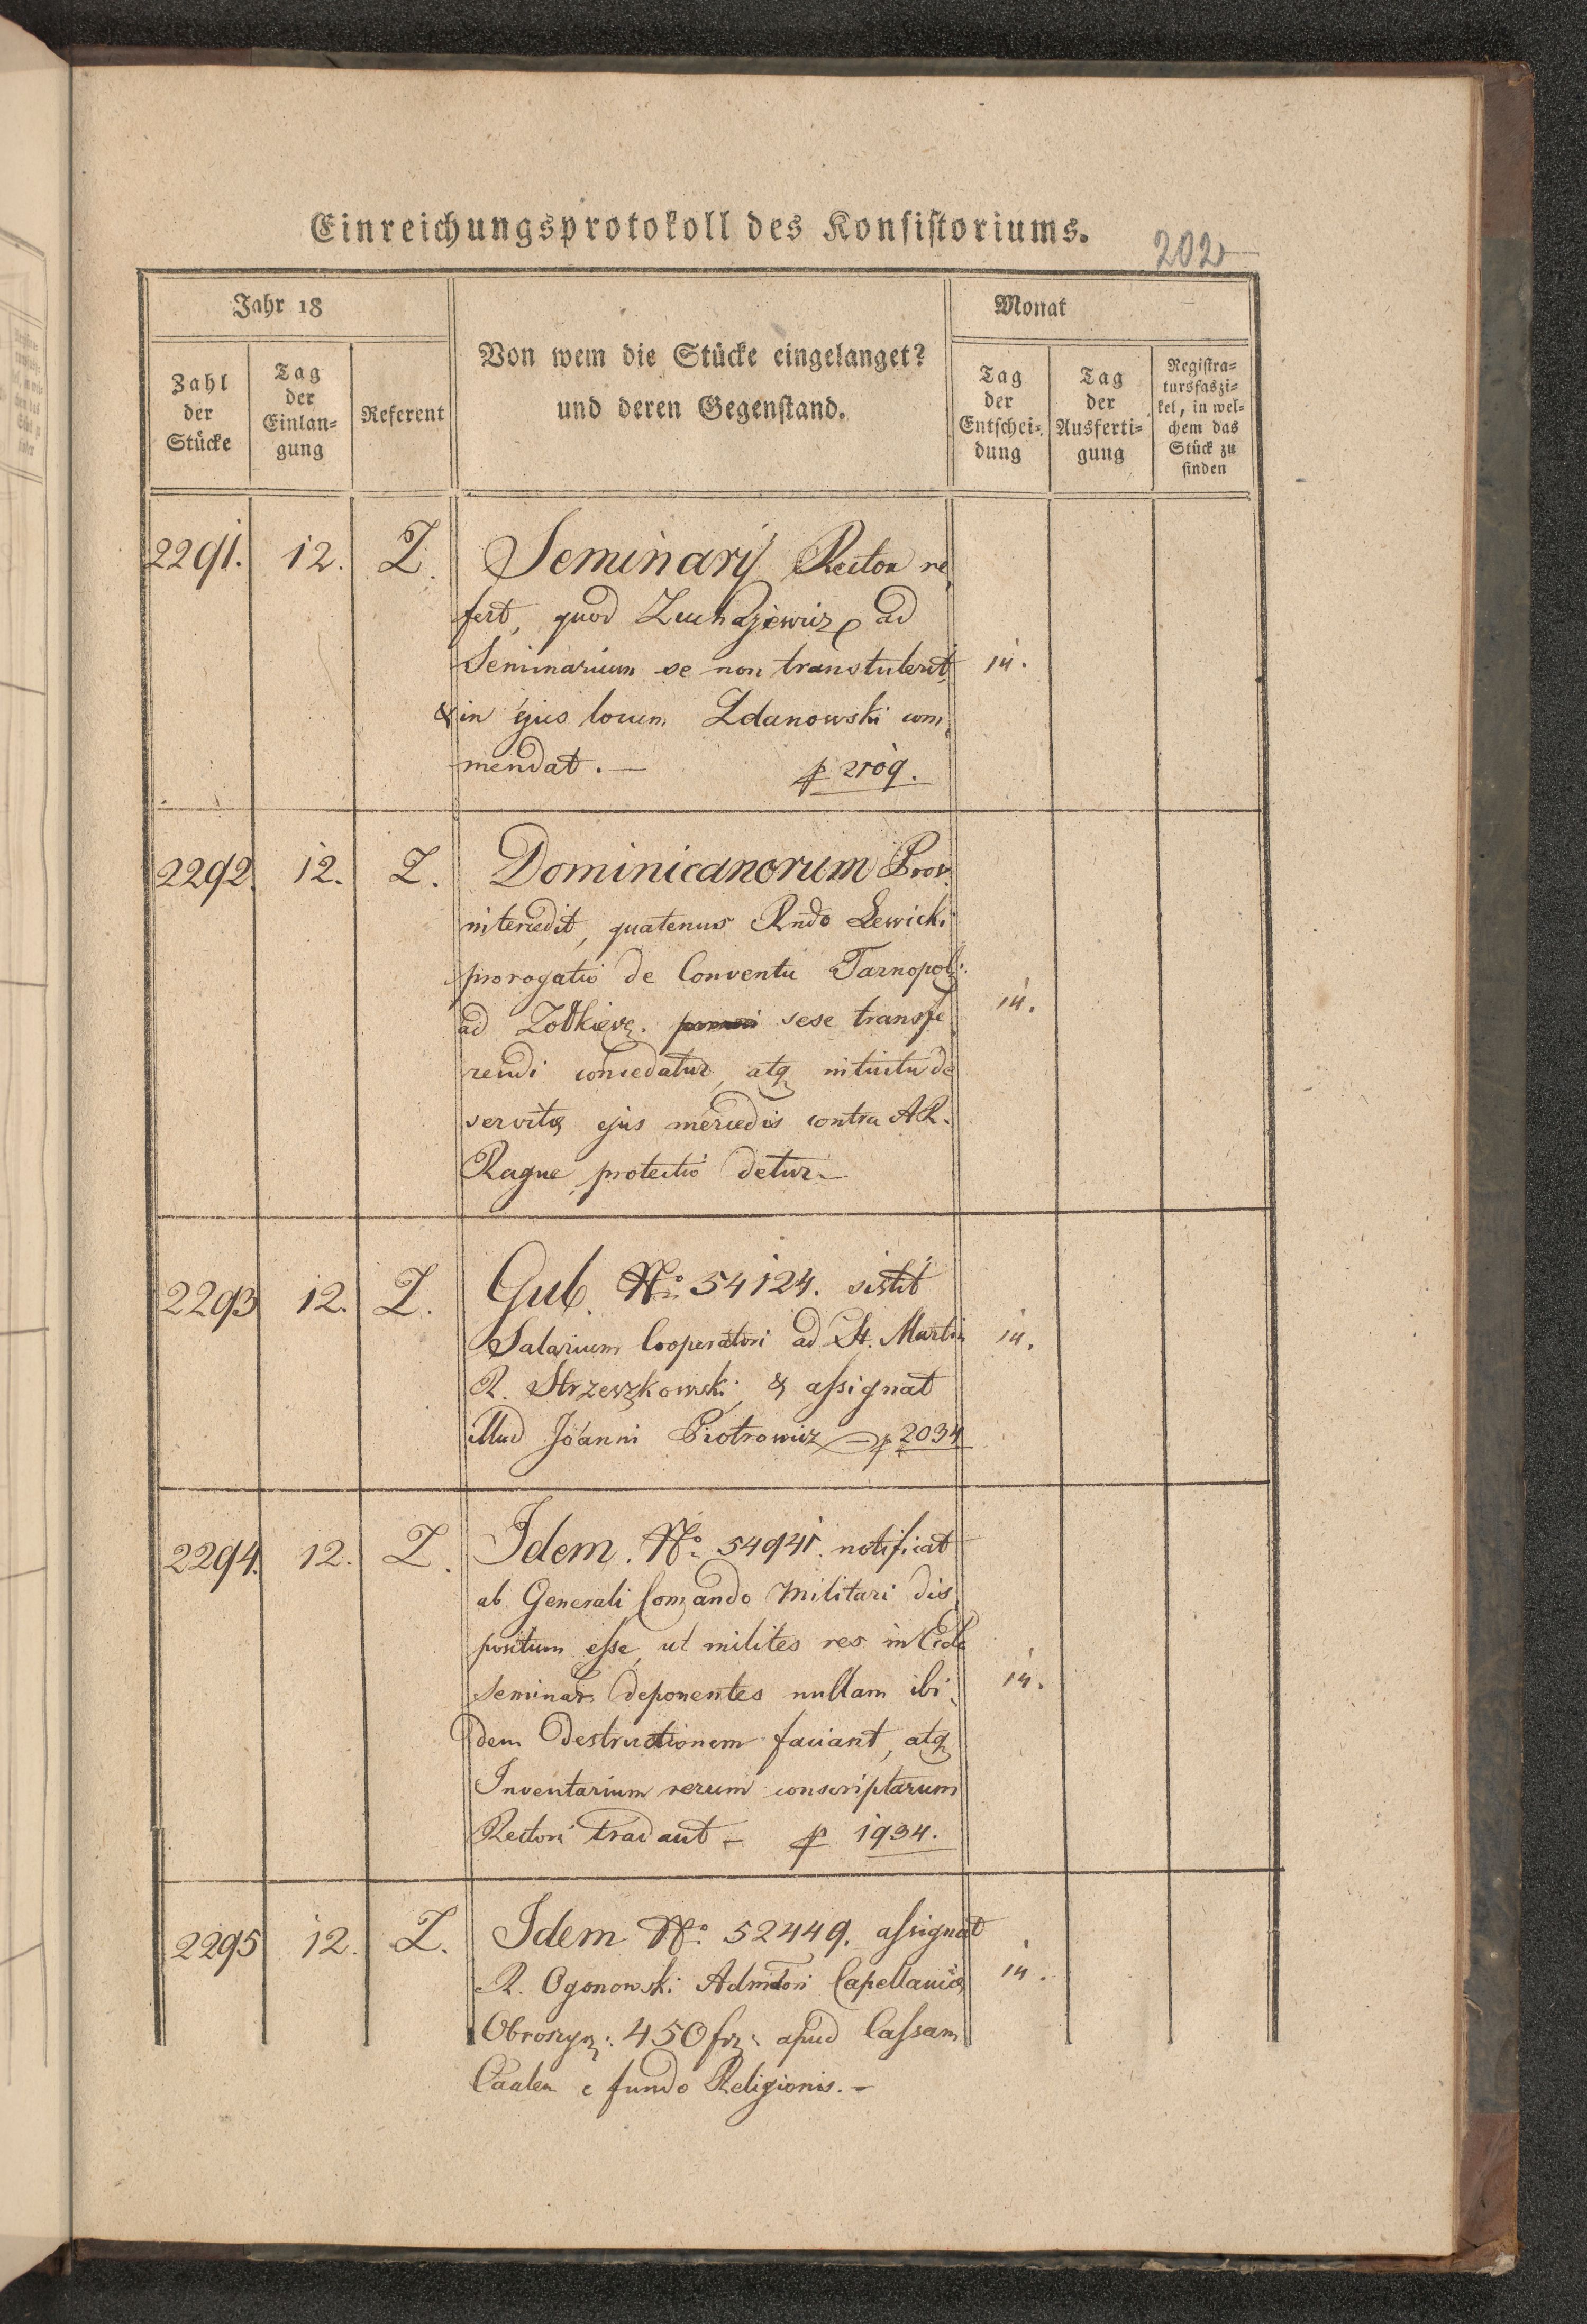 Einreichungsprotokoll des Konsistoriums.
202
Jahr 18
Monat
Zahl der Stücke
Tag der Einlan=gung
Referent
Von wem die Stücke eingelanget?
und deren Gegenstand.
Tag der Entschei=dung
Tag der Ausferti=gung
Registra=tursfaszi=kel, in wel=chem das Stück zu finden
2291. 12. Z. Seminarij Rector re
fert, quod Zuchajewicz ad
Seminarium se non transtulerit 14.
& in ejus locum Zdanowski com
mendat. — p 2109.
2292. 12. Z. Dominicanorum Prov.
intercedit, quatenus Rndo Lewicki
prorogatio de Conventu Tarnopol:
ad Zołkiew. sese transfe 14.
rendi concedatur, atq intuitu de
servitæ ejus mercedis contra AR.
Rague protectio detur. —
2293 12. Z. Gub. No. 54124. sistit
Salarium Cooperatori ad St. Martin 14.
R. Strzeszkowski, & assignat
illud Joanni Piotrowicz — p 2034
2294. 12. Z. Idem. No. 54941. notificat
ab Generali Comando Militari dis
positum esse, ut milites res in Eccle
Seminar. deponentes nullam ibi 14.
dem destructionem faciant, atq
Inventarium rerum conscriptarum
Rectori tradant — p 1934.
2295 12. Z. Idem No. 52449. assignat
R. Ogonowski Admtori Capellaniæ 14.
Obroszyn: 450 fr: apud Cassam
Caalem e fundo Religionis. —